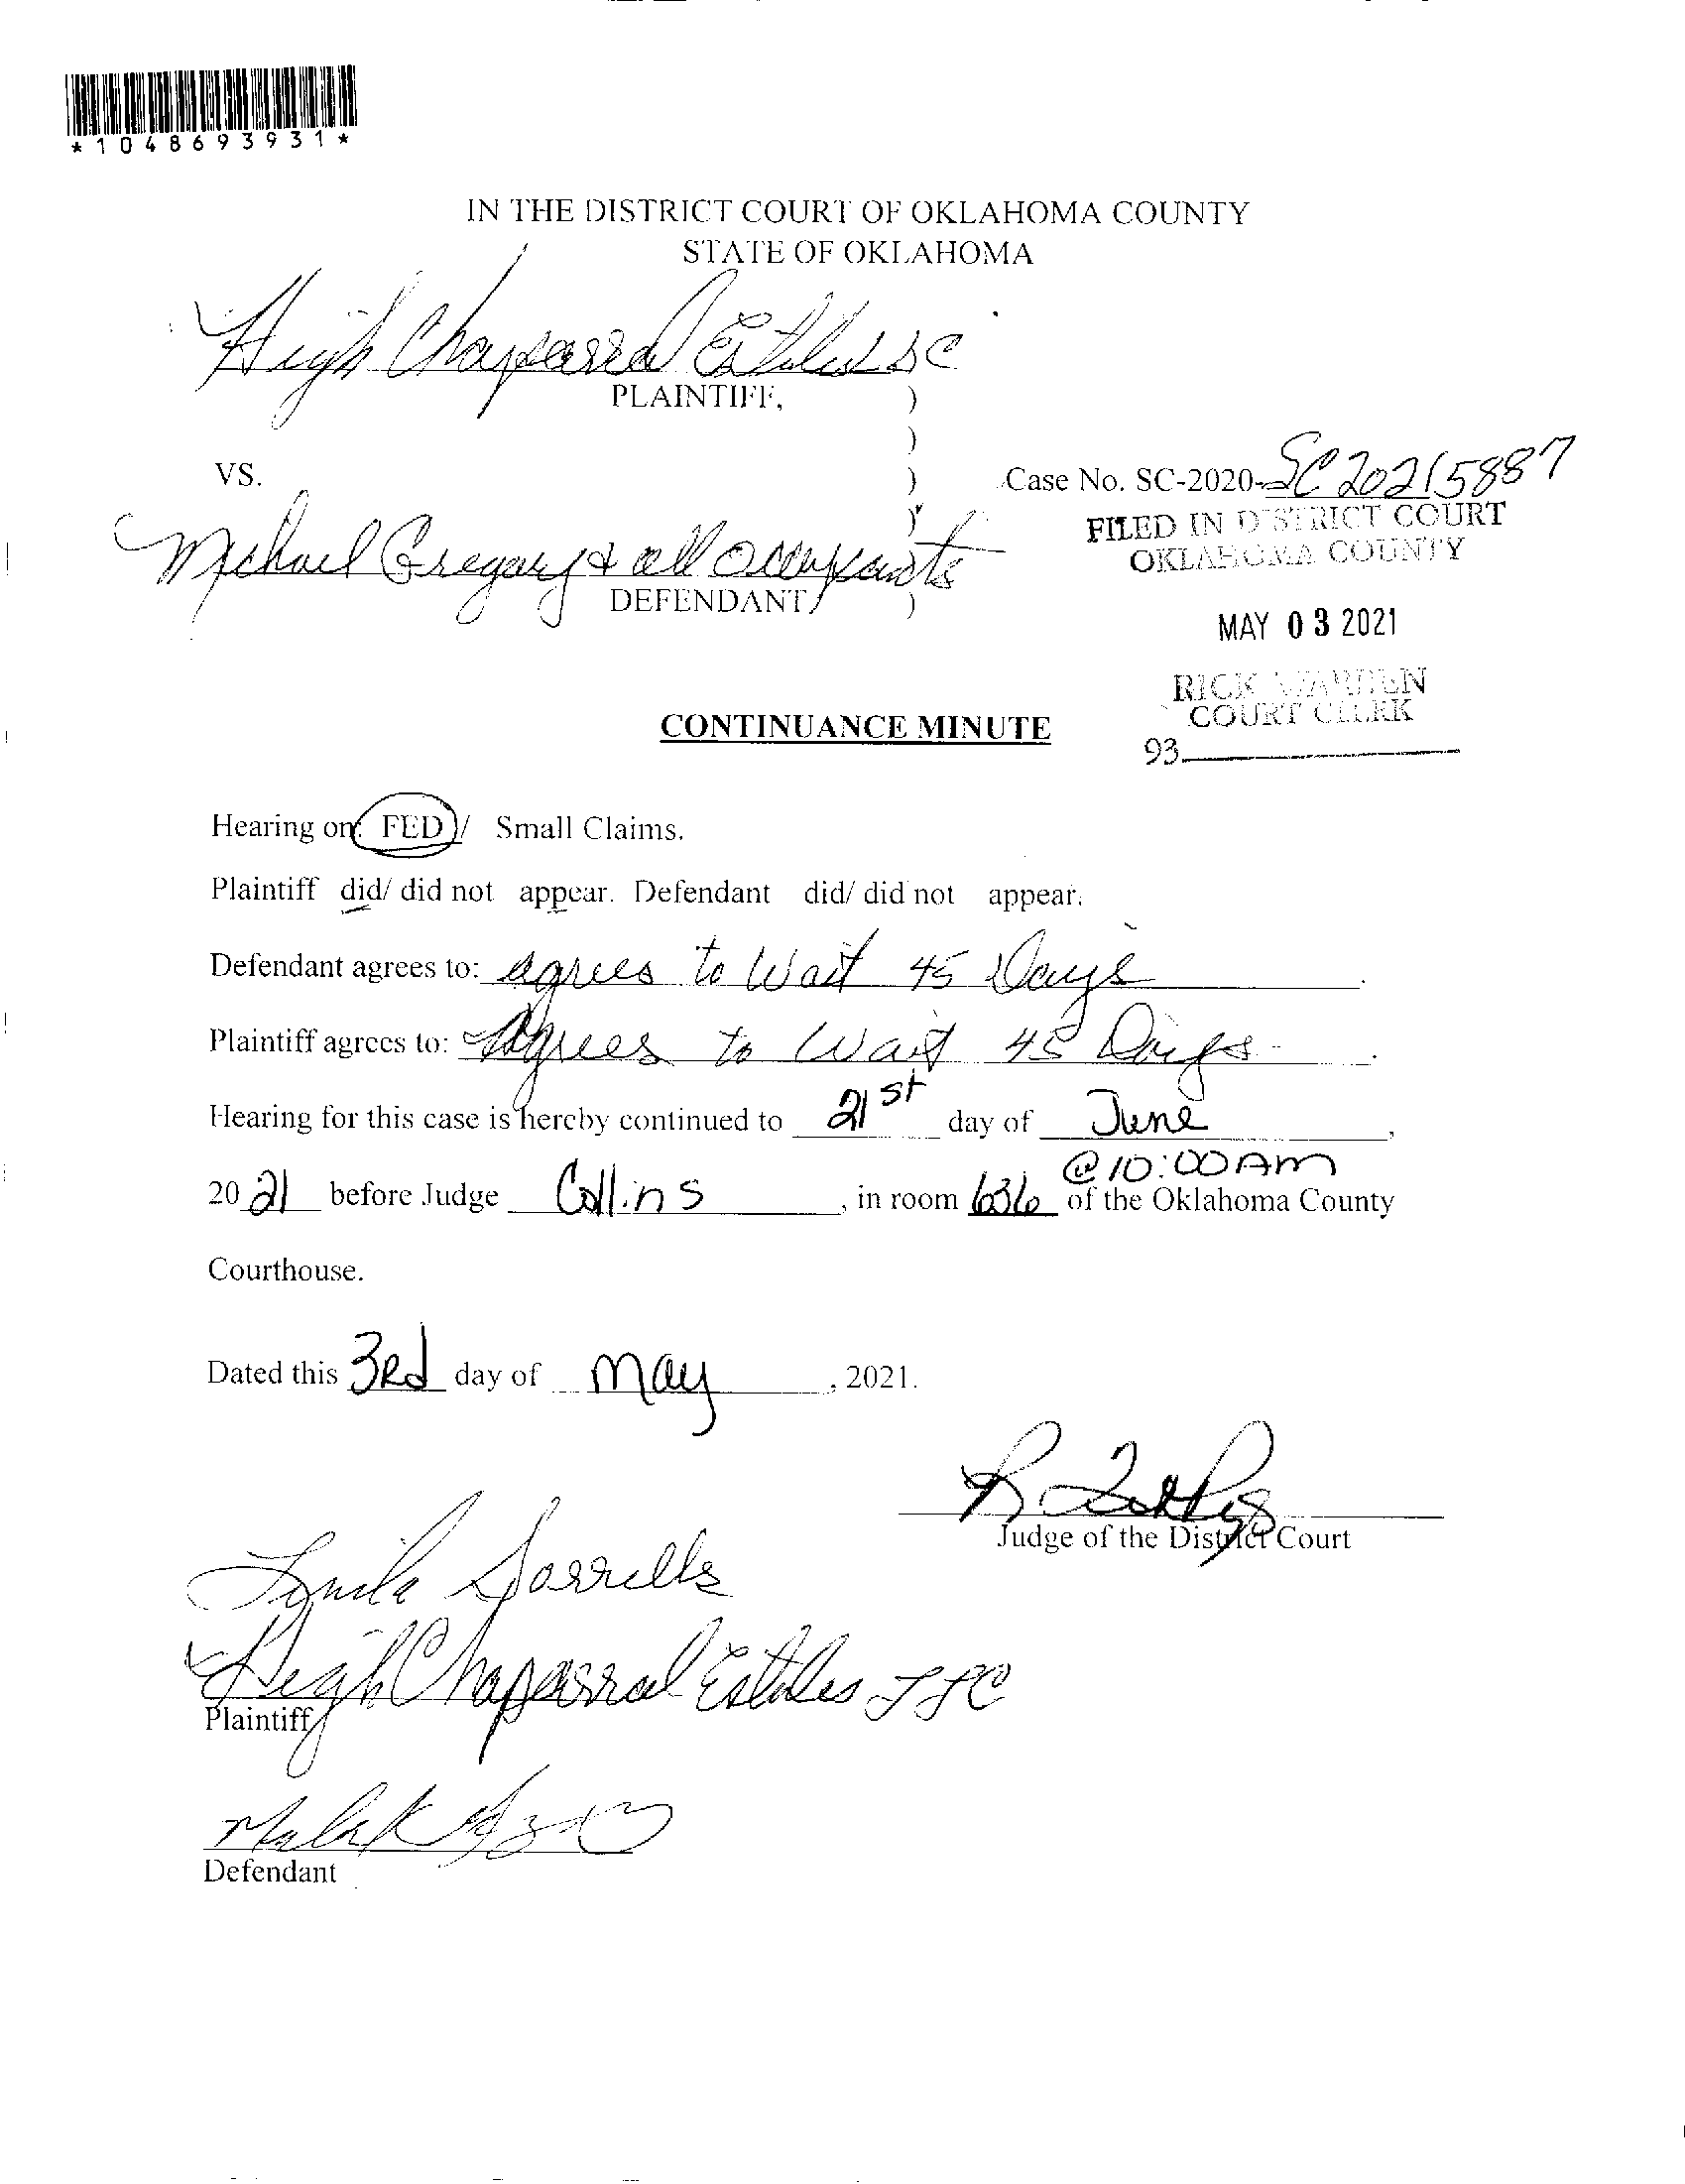 *1048693931*
IN THE DISTRICT COURT OF OKLAHOMA COUNTY
STATE OF OKLAHOMA
High Chaparral Estates
PLAINTIFF,
)
)
VS.
)
Case No. SC-2020-SC20215887
)
FILED IN DISTRICT COURT
OKLAHOMA COUNTY
Michael Gregory & all occupants
DEFENDANT
)
MAY 03 2021
RICK WARREN
COURT CLERK
93
CONTINUANCE MINUTE
Hearing on: FED / Small Claims.
Plaintiff did/ did not appear. Defendant did/ did not appear.
Defendant agrees to: agrees to Wait 45 Days.
Plaintiff agrees to: Agrees to Wait 45 Days.
Hearing for this case is hereby continued to 21st day of June,
@ 10:00 Am
20 21 before Judge Collins, in room 636 of the Oklahoma County
Courthouse.
Dated this 3Rd day of May, 2021.
Judge of the District Court
Linda Sorrells
High Chaparral Estates LLC
Plaintiff
Defendant